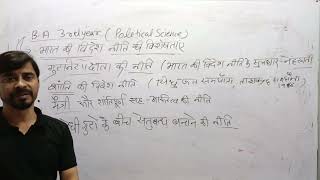 B.A 3rd year (Political Science)
भारत की विदेश नीति की विशेषताएं
गुटनिरपेक्षता की नीति (भारत की विदेश नीति के सूत्रधार - नेहरूजी
शांति की विदेश नीति (
मैत्री और शांतिपूर्ण सह-अस्तित्व की नीति
गुटों के बीच सेतुबन्ध बनाने की नीति